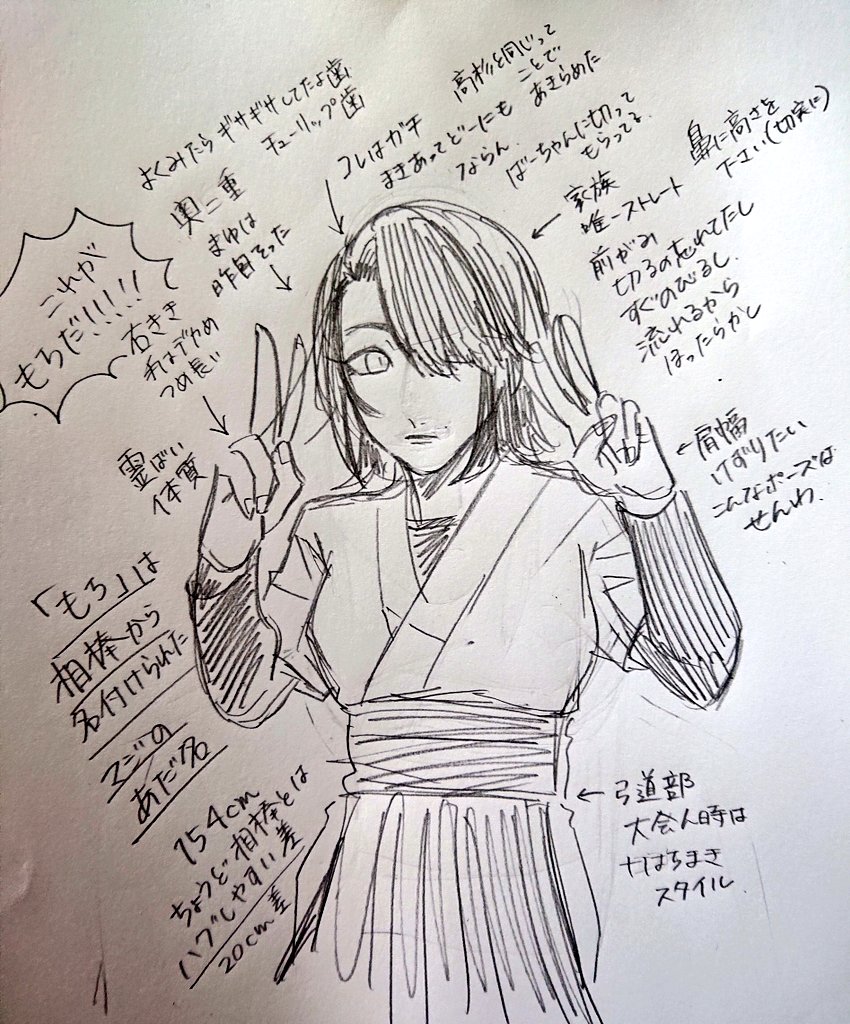 よくみたらギザギザしてたよ歯
チューリップ歯
奥二重
コレはガチ
まきあってどーにも
ならん
高杉と同じって
ことで
あきらめた
ばーちゃんに切って
もらってる
鼻に高さを
下さい(切実に)
家族
唯一ストレート
前がみ
切るの忘れてたし
すぐのびるし
流れるから
ほったらかし
まゆは
昨日そった
これが
もろだ!!!!!
右きき
手はデカめ
つめ長い
霊ばい
体質
肩幅
けずりたい
こんなポーズは
せんわ.
「もろ」は
相棒から
名付けられた
マジの
あだ名
154cm
ちょうど相棒とは
ハグしやすい差
20cm差
弓道部
大会人時は
+はちまき
スタイル